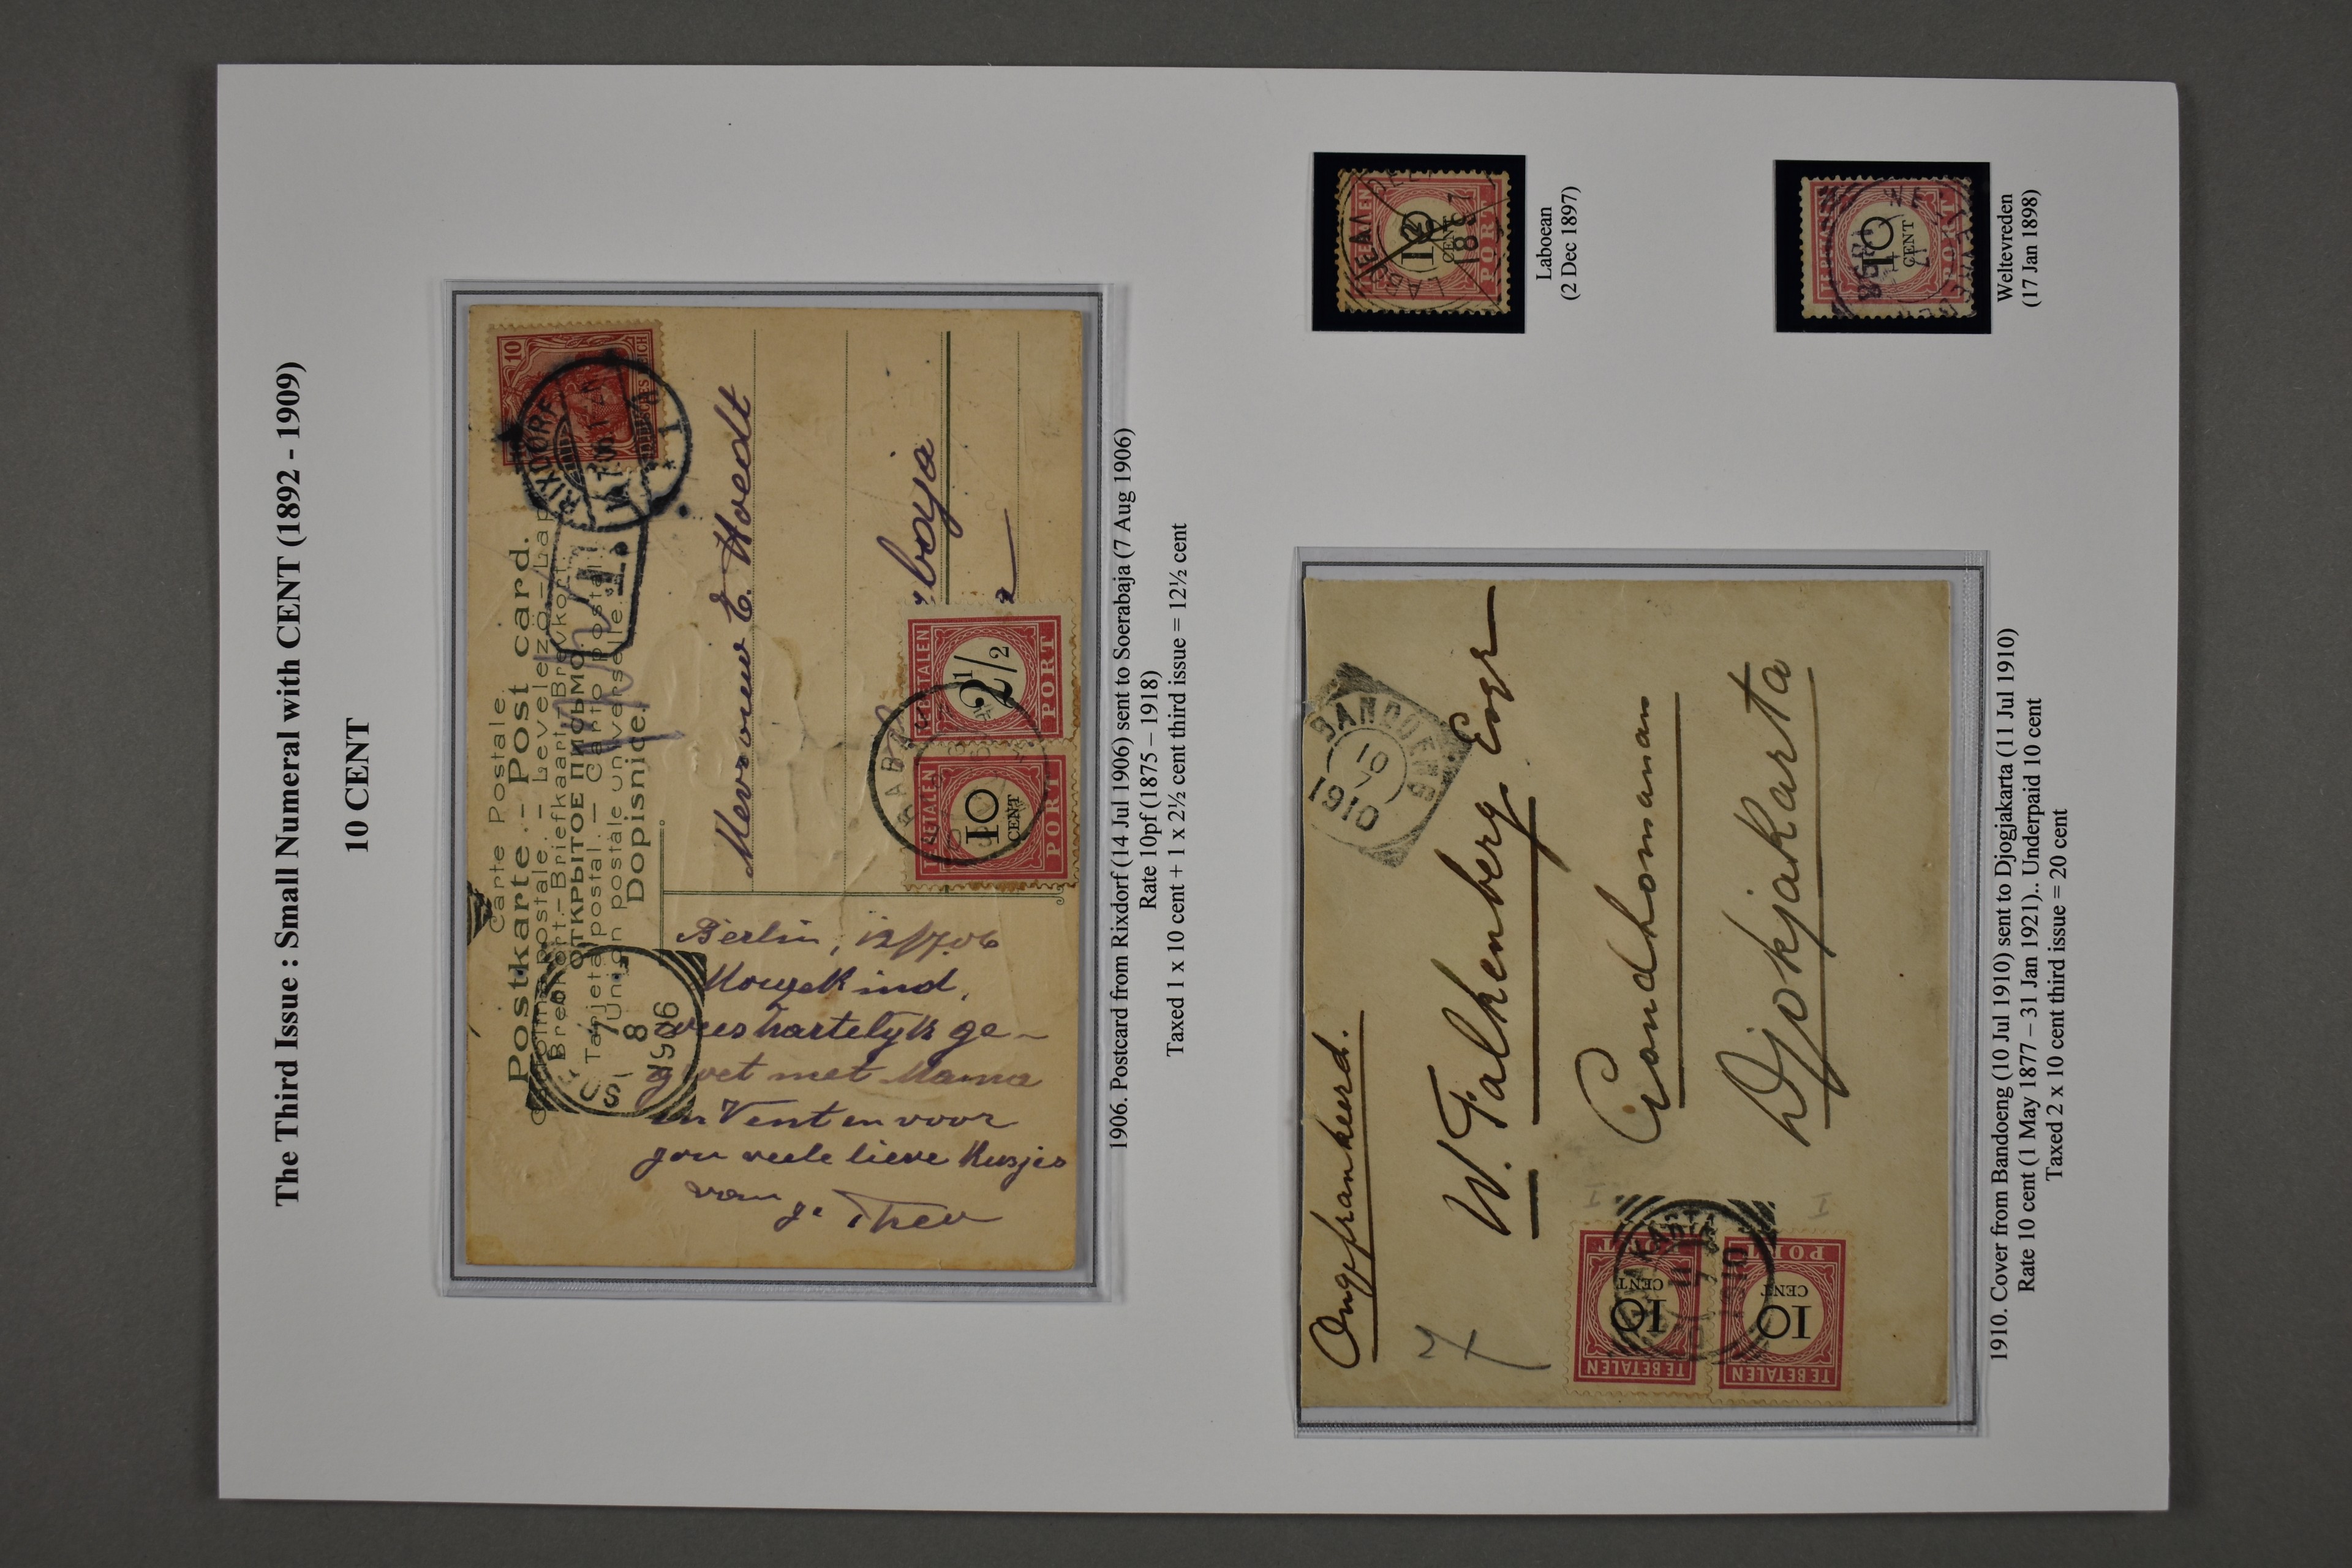 The Third Issue : Small Numeral with CENT (1892 - 1909)
10 CENT
Carte Postale.
Postkarte. – Post card.
ОТКРЫТОЕ ПИСЬМО.
Union postale universelle.
Dopisnice.
10
RIXDORF
14.7.06
1
T.
Mevrouw E. Hoedt
TE BETALEN
10
CENT
PORT
2½
PORT
7
8
1906
Berlin, 12/7.06
wees hartelijk ge-
met Mama
en Vent en voor
jou veele lieve kusjes
van
je Theo
1906. Postcard from Rixdorf (14 Jul 1906) sent to Soerabaja (7 Aug 1906)
Rate 10pf (1875 – 1918)
Taxed 1 x 10 cent + 1 x 2½ cent third issue = 12½ cent
PORT
1897
Laboean
(2 Dec 1897)
10
CENT
Weltevreden
(17 Jan 1898)
Ongefrankeerd.
BANDOENG
10
7
1910
W. Falkenberg Esqr
Gondhomanan
Djokjakarta
TE BETALEN
10
CENT
PORT
TE BETALEN
10
CENT
PORT
11
7
1910
1910. Cover from Bandoeng (10 Jul 1910) sent to Djogjakarta (11 Jul 1910)
Rate 10 cent (1 May 1877 – 31 Jan 1921).. Underpaid 10 cent
Taxed 2 x 10 cent third issue = 20 cent